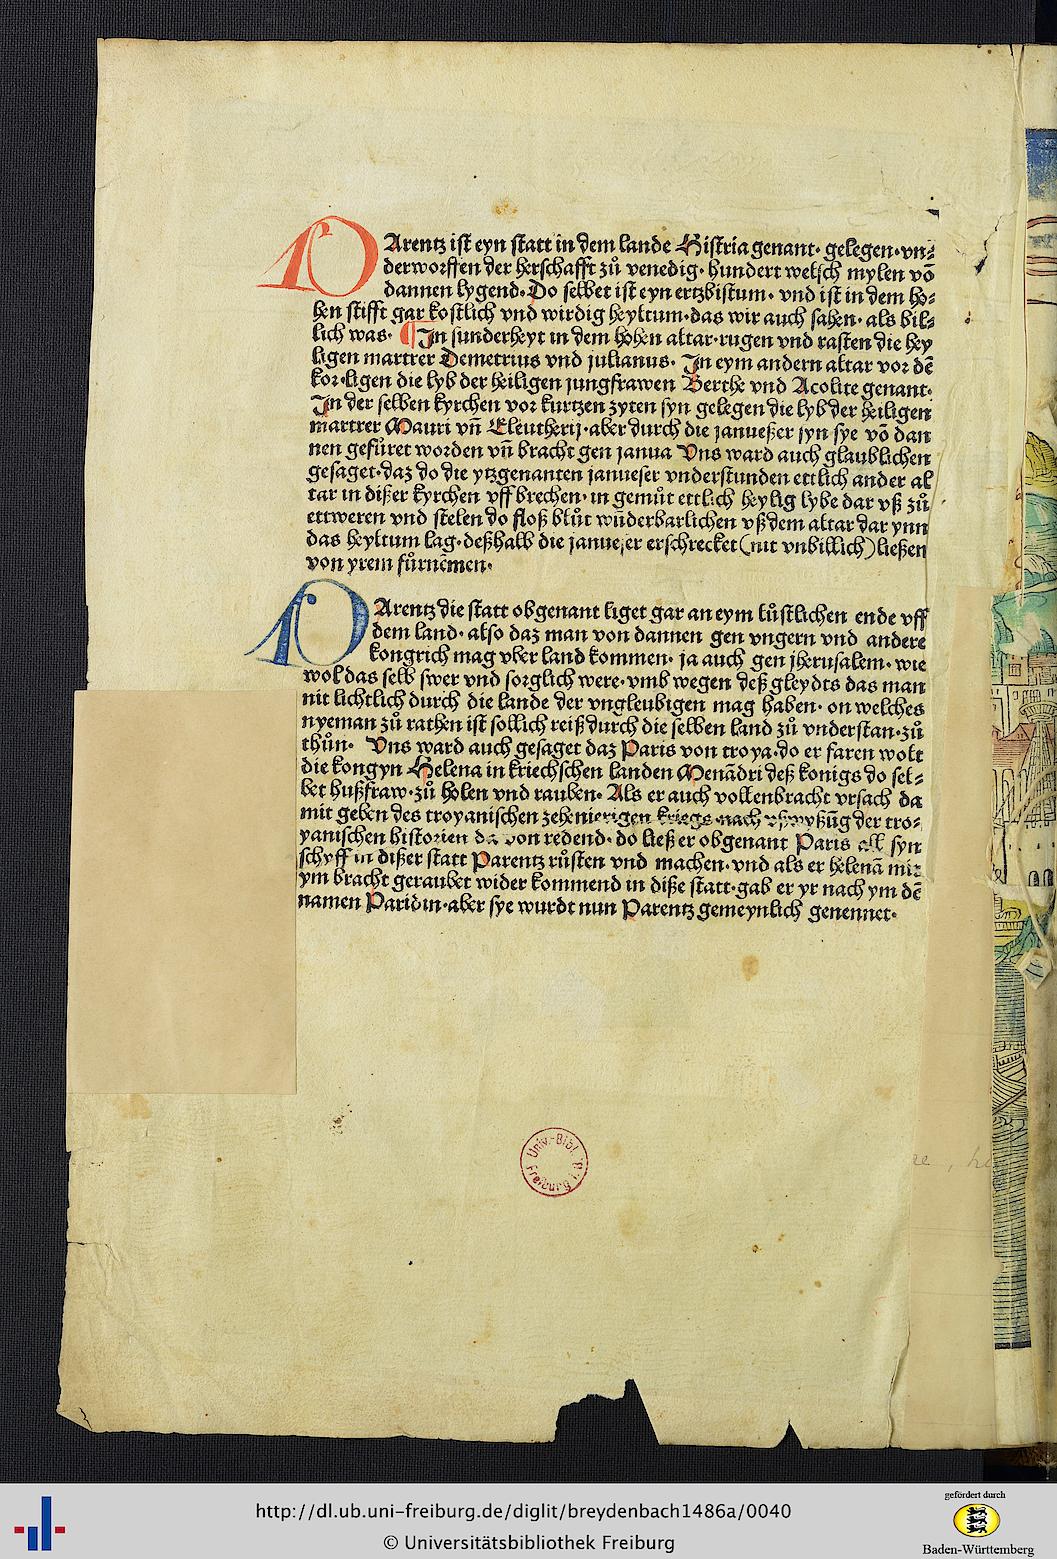 PArentz ist eyn statt in dem lande Histria genant· gelegen· vn⸗
derworffen der herschafft zů venedig· hundert welsch mylen vō
dannen lygend· Do selbet ist eyn ertzbistum· vnd ist in dem ho⸗
hen stifft gar kostlich vnd wirdig heyltum· das wir auch sahen· als bil⸗
lich was· ¶ In sunderheyt in dem hohen altar· rugen vnd rasten die hey
ligen martrer Demetrius vnd julianus· In eym andern altar vor dē
kor· ligen die lyb der heiligen jungfrawen Berthe vnd Acolite genant·
In der selben kyrchen vor kurtzen zyten syn gelegen die lyb der heiligen
martrer Mauri vñ Eleutherij· aber durch die janueßer syn sye vō dan
nen gefüret worden vñ bracht gen janua Vns ward auch glaublichen
gesaget· daz do die ytzgenanten janueser vnderstunden ettlich ander al
tar in dißer kyrchen vff brechen· in gemüt ettlich heylig lybe dar vß zů
ettweren vnd stelen do floß blůt wūderbarlichen vß dem altar dar ynn
das heyltum lag· deßhalb die janueser erschrecket (nit vnbillich) ließen
von yrem fürnēmen·
PArentz die statt obgenant liget gar an eym lůstlichen ende vff
dem land· also daz man von dannen gen vngern vnd andere
kongrich mag vber land kommen· ja auch gen jherusalem· wie
wol das selb swer vnd sorglich were· vmb wegen deß gleydts das man
nit lichtlich durch die lande der vngleubigen mag haben· on welches
nyeman zů rathen ist sollich reiß durch die selben land zů vnderstan· zů
thůn· Vns ward auch gesaget daz Paris von troya· do er faren wolt
die kongyn Helena in kriechschen landen Menādri deß konigs do sel⸗
bet hußfraw· zů holen vnd rauben· Als er auch vollenbracht vrsach da
mit geben des troyanischen zehenierigen kriegs nach vßwyßūg der tro⸗
yanischen historien da von redend· do ließ er obgenant Paris all syn
schyff in dißer statt Parentz růsten vnd machen· vnd als er helenā mit
ym bracht geraubet wider kommend in diße statt· gab er yr nach ym dē
namen Paridin· aber sye wurdt nun Parentz gemeynlich genennet·
Univ.-Bibl.
Freiburg i. B.
http://dl.ub.uni-freiburg.de/diglit/breydenbach1486a/0040
© Universitätsbibliothek Freiburg
gefördert durch
Baden-Württemberg